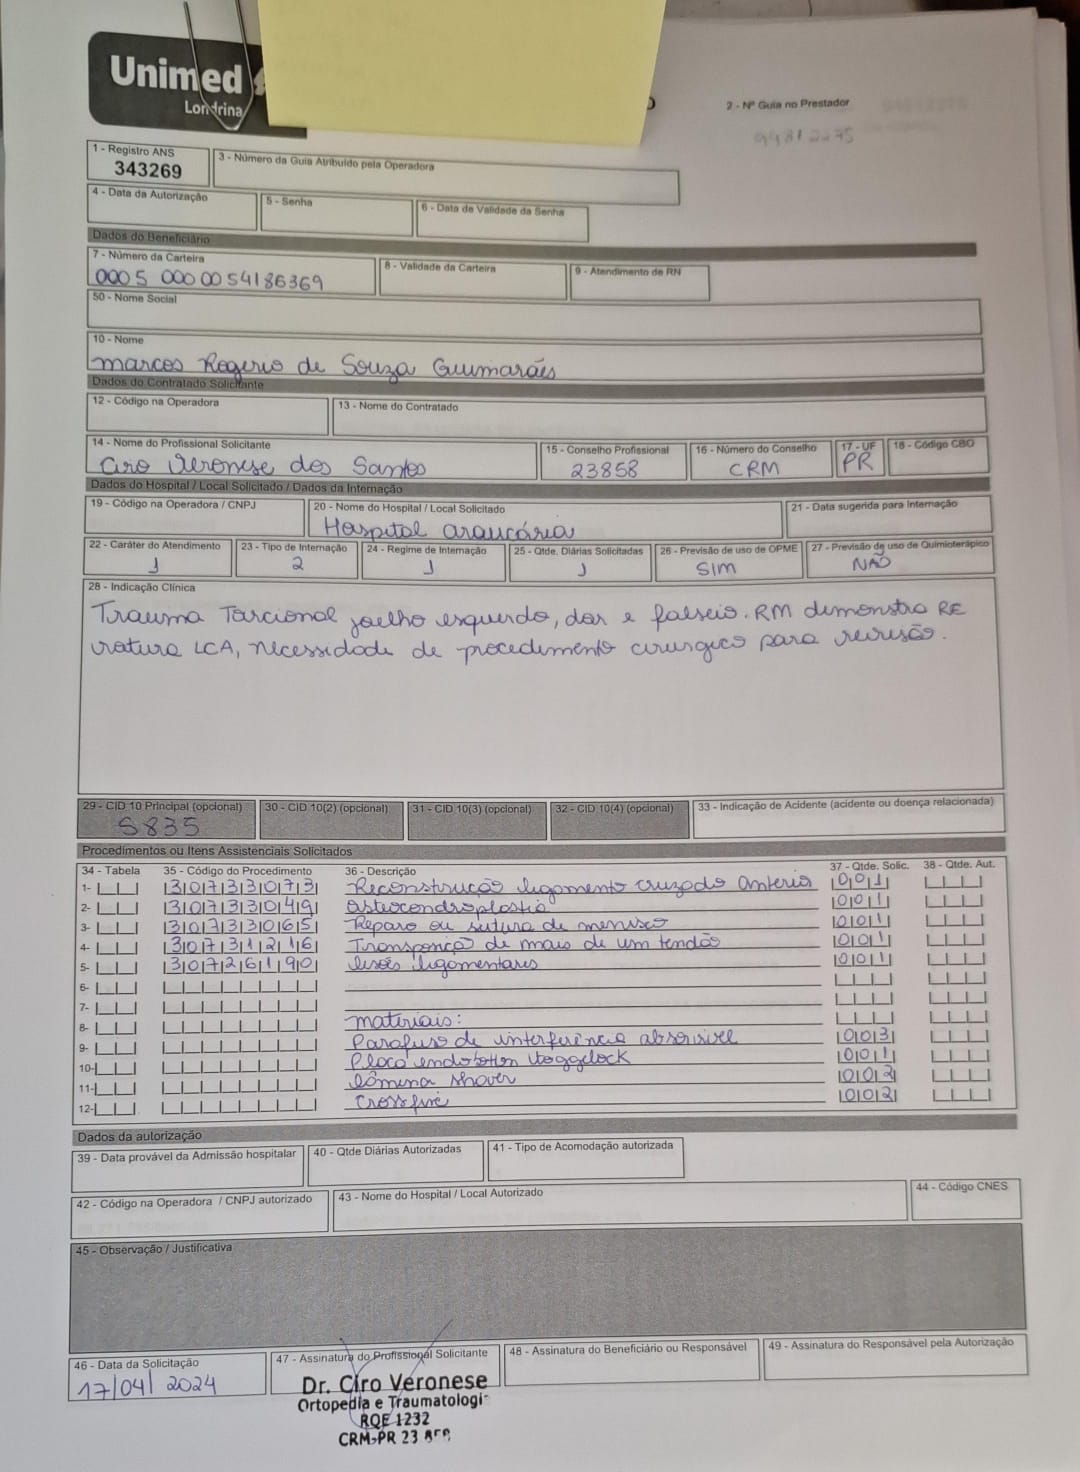 Unimed
Londrina
2 - Nº Guia no Prestador
1 - Registro ANS
343269
3 - Número da Guia Atribuído pela Operadora
4 - Data da Autorização
5 - Senha
6 - Data de Validade da Senha
Dados do Beneficiário
7 - Número da Carteira
8 - Validade da Carteira
9 - Atendimento de RN
0005 000054186369
50 - Nome Social
10 - Nome
marcos Rogerio de Souza Guimarães
Dados do Contratado Solicitante
12 - Código na Operadora
13 - Nome do Contratado
14 - Nome do Profissional Solicitante
15 - Conselho Profissional
16 - Número do Conselho
17 - UF
18 - Código CBO
Ciro Veronese dos Santos
23858
CRM
PR
Dados do Hospital / Local Solicitado / Dados da Internação
19 - Código na Operadora / CNPJ
20 - Nome do Hospital / Local Solicitado
21 - Data sugerida para Internação
Hospital araucária
22 - Caráter do Atendimento
23 - Tipo de Internação
24 - Regime de Internação
25 - Qtde. Diárias Solicitadas
26 - Previsão de uso de OPME
27 - Previsão de uso de Quimioterápico
1
2
1
1
SIM
NÃO
28 - Indicação Clínica
Trauma Torcional joelho esquerdo, dor e falseio. RM demonstra RE
rotura LCA, necessidade de procedimento cirurgico para revisão.
29 - CID 10 Principal (opcional)
30 - CID 10(2) (opcional)
31 - CID 10(3) (opcional)
32 - CID 10(4) (opcional)
33 - Indicação de Acidente (acidente ou doença relacionada)
S835
Procedimentos ou Itens Assistenciais Solicitados
34 - Tabela
35 - Código do Procedimento
36 - Descrição
37 - Qtde. Solic.
38 - Qtde. Aut.
1- 30733073 Reconstrução ligamento cruzado anterio 001
2- 30733049 osteocondroplastia 001
3- 30733065 Reparo ou sutura de menisco 001
4- 30731216 Transposição de mais de um tendão 001
5- 30726190 lesões ligamentares 001
6-
7-
8- materiais:
9- Parafuso de interferência absorsivel 003
10- Placa endobotton toggelock 001
11- lâmina shaver 002
12- Crossfire 002
Dados da autorização
39 - Data provável da Admissão hospitalar
40 - Qtde Diárias Autorizadas
41 - Tipo de Acomodação autorizada
42 - Código na Operadora / CNPJ autorizado
43 - Nome do Hospital / Local Autorizado
44 - Código CNES
45 - Observação / Justificativa
46 - Data da Solicitação
47 - Assinatura do Profissional Solicitante
48 - Assinatura do Beneficiário ou Responsável
49 - Assinatura do Responsável pela Autorização
17/04/2024
Dr. Ciro Veronese
Ortopedia e Traumatologi
RQE 1232
CRM-PR 23